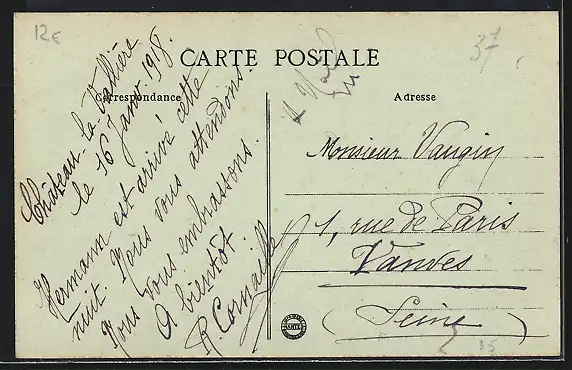 12€
37
CARTE POSTALE
Correspondance
Adresse
Château-la-Vallière
le 16 Janv. 1918.
Hermann est arrivé cette
nuit. Nous vous attendons.
Nous vous embrassons.
A bientôt
R. Cornaille
Monsieur Vaugin
1, rue de Paris
Vanves
(Seine)